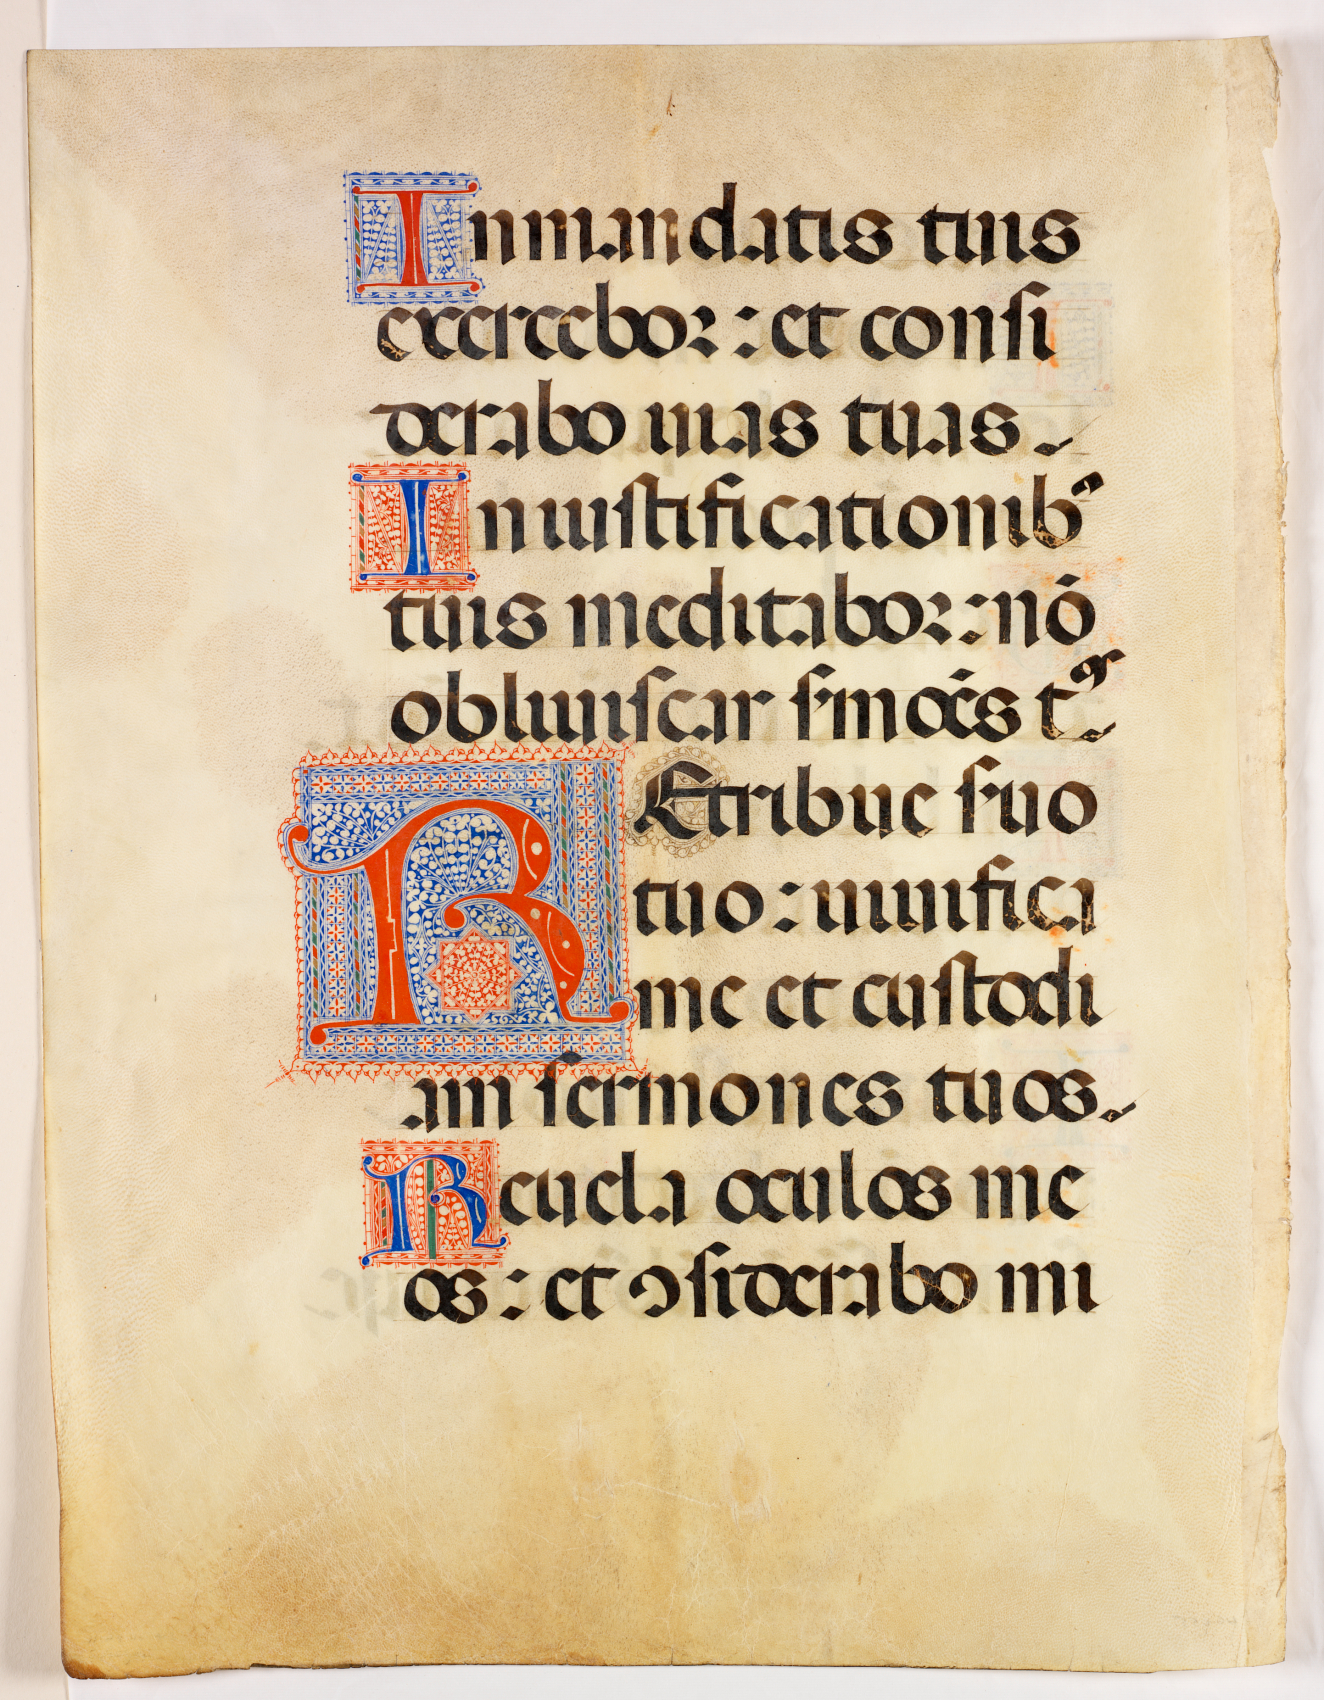 In mandatis tuis
exercebor : et consi
derabo uias tuas.
In iustificationib⁹
tuis meditabor : nō
obliuiscar s'mōēs t⁹.
REtribue s'uo
tuo : uiuifica
me et custodi
am sermones tuos.
Reuela oculos me
os : et ꝯsiderabo mi